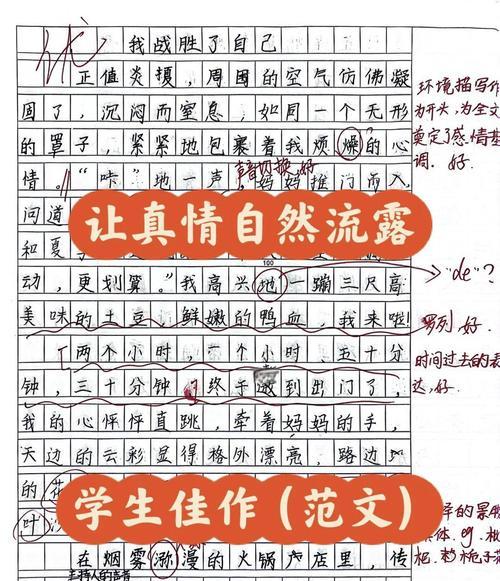 优
我战胜了自己
正值炎擾,周围的空气仿佛凝
固了,沉闷而窒息,如同一个无形
的罩子,紧紧地包裹着我烦燥的心
情。“咔”地一声,妈妈推门而入
声音切换,好
问道
让真情自然流露
和夏
动,更划算。”我高兴地一蹦三尺高
100
美味的土豆,鲜嫩的鸭血,我来啦!
两个小时,一个小时,五十分
钟,三十分钟,终于到出门了,
我的心怦怦直跳,牵着妈妈的手,
天边的云彩显得格外漂亮,路边
的花
学生佳作(范文)
叶
在烟雾弥漫的火锅店里,传
主持人的声音
环境描写作
为开头,为全文
奠定了感情基
调。好。
“de”?
罗列,好。
时间过去的表
达,好。